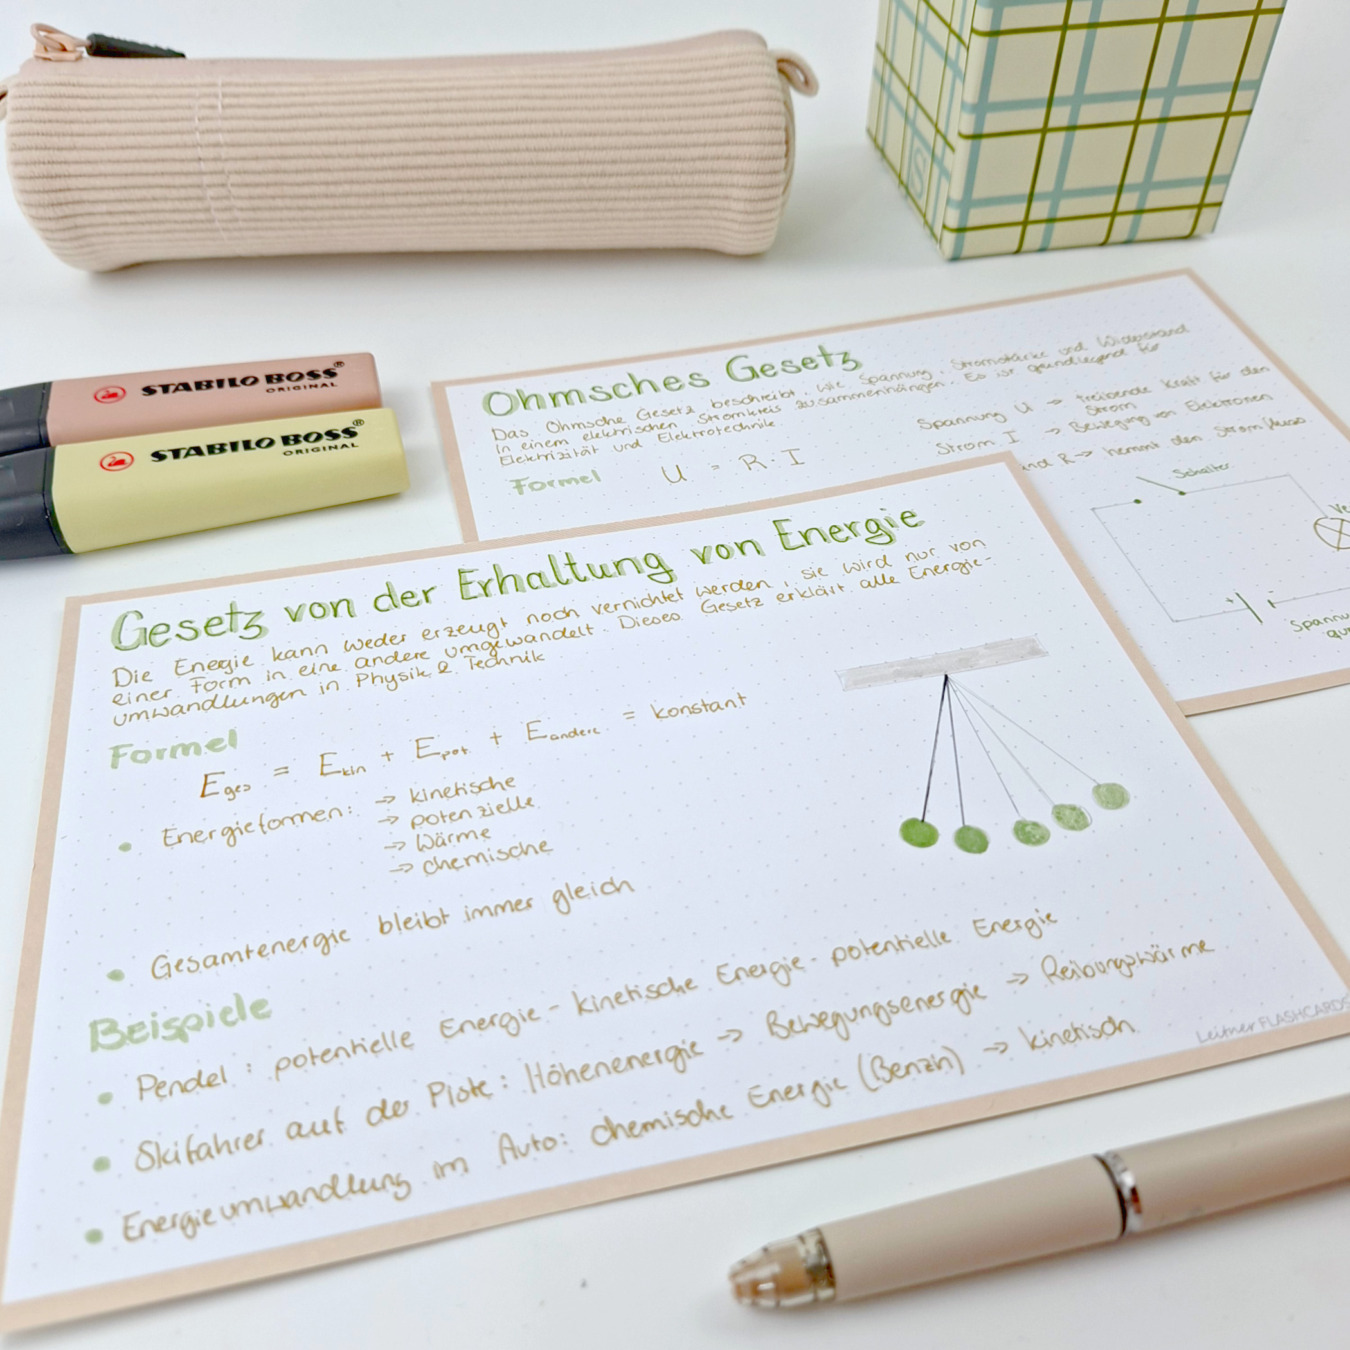 STABILO BOSS®
ORIGINAL
STABILO BOSS®
ORIGINAL
Ohmsches Gesetz
Das Ohmsche Gesetz beschreibt, wie Spannung, Stromstärke und Widerstand
in einem elektrischen Stromkreis zusammenhängen. Es ist grundlegend für
Elektrizität und Elektrotechnik
Formel U = R · I
Spannung U → treibende Kraft für den
Strom
Strom I → Bewegung von Elektronen
R → hemmt den Stromfluss
Schalter
Ve
+
Spannu
que
Gesetz von der Erhaltung von Energie
Die Energie kann weder erzeugt noch vernichtet werden, sie wird nur von
einer Form in eine andere umgewandelt. Dieses Gesetz erklärt alle Energie-
umwandlungen in Physik & Technik
Formel
Eges = Ekin + Epot + Eandere = konstant
• Energieformen: → kinetische
→ potenzielle
→ Wärme
→ chemische
• Gesamtenergie bleibt immer gleich
Beispiele
• Pendel: potentielle Energie - kinetische Energie - potentielle Energie
• Skifahrer auf der Piste: Höhenenergie → Bewegungsenergie → Reibungswärme
• Energieumwandlung im Auto: chemische Energie (Benzin) → kinetisch
Leitner FLASHCARDS